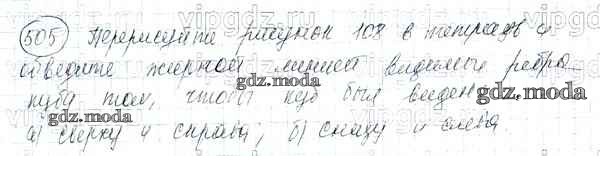 505 Перерисуйте рисунок 108 в тетрадь и
обведите жирной линией видимые ребра
куба так, чтобы куб был виден
а) сверху и справа; б) снизу и слева.
gdz.moda
gdz.moda
gdz.moda